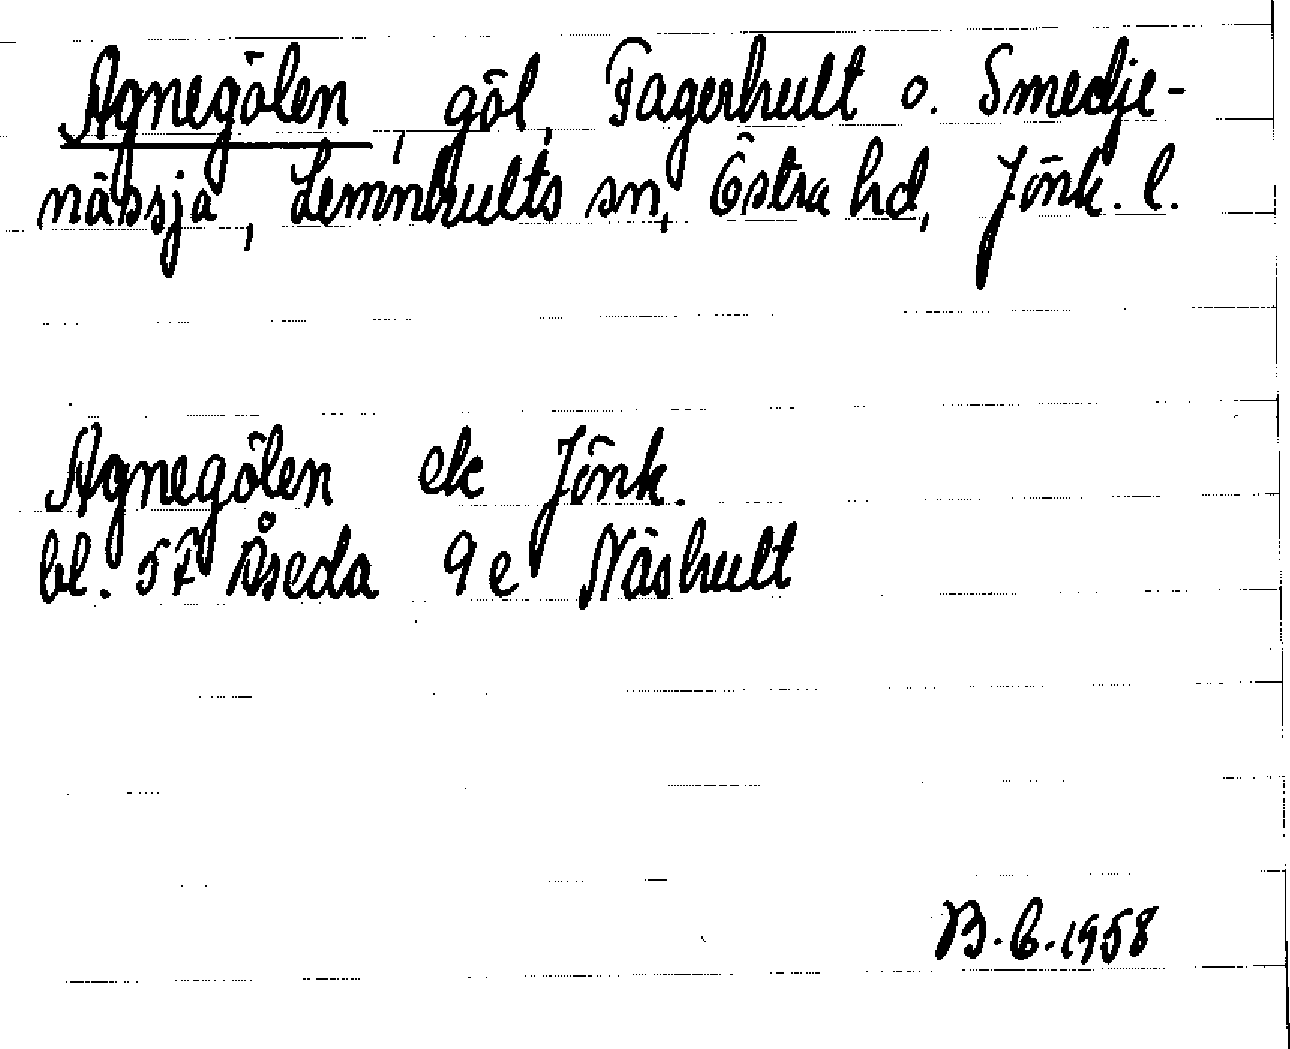 Agnegölen, göl, Fagerhult o. Smedje-
nässja, Lemnhults sn, Östra hd, Jönk. l.
Agnegölen ek Jönk.
bl. 57 Åseda 9 e Näshult
B. E. 1958